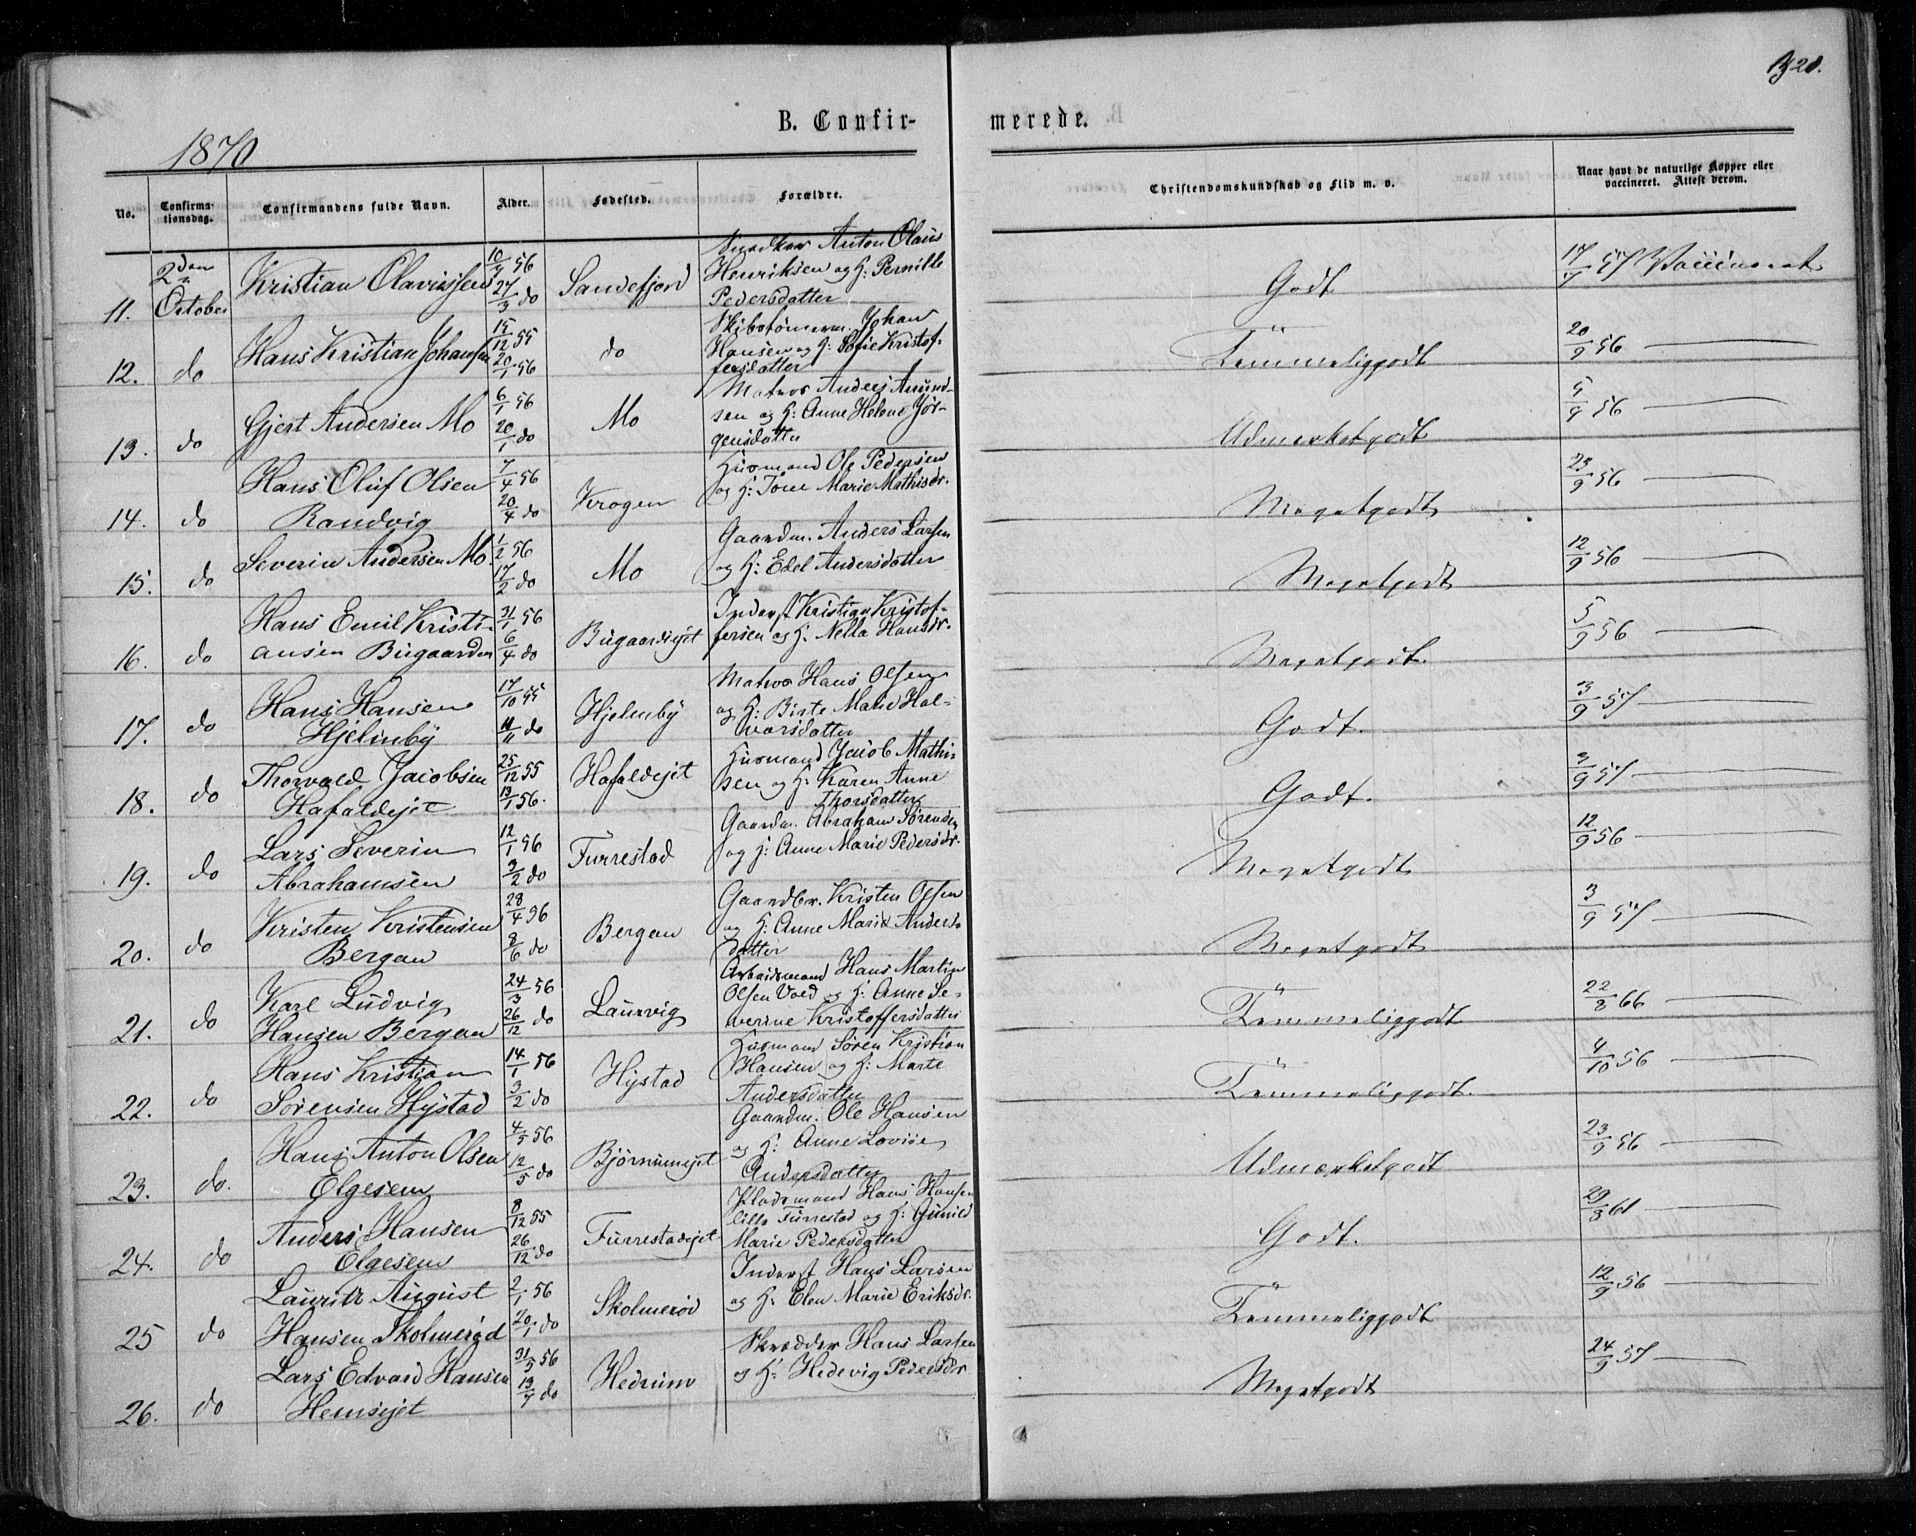 B. Confirmerede.
1870
No.
Confirmationsdag.
Confirmandens fulde Navn.
Alder.
Fødested.
Forældre.
Christendomskundskab og Flid m. v.
Naar havt de naturlige Kopper eller vaccineret. Attest derom.
11. 2den October Kristian Olaviussen 56 27/3 do Sandefjord
Anton Olaus
Henriksen og H: Pernille
Pedersdatter
Godt 17/7 57 Vaccineret
12. do Hans Kristian Johansen 15/12 55 20/1 56 do
Skibstömerm. Johan
Hansen og H: Sofie Kristof-
fersdatter
Temmeliggodt 20/9 56
13. do Gjert Andersen Mo 6/1 56 20/1 do Mo
Matros Anders Amund-
sen og H: Anne Helene Jör-
gensdatter
Udmærketgodt 5/9 56
14. do Hans Oluf Olsen
Randvig 7/4 56 20/4 do Krogen
Husmand Ole Pedersen
og H: Tone Marie Mathisdr.
Megetgodt 23/9 56
15. do Severin Andersen Mo 1/2 56 17/2 do Mo
Gaardm. Anders Larsen
og H: Edel Andersdatter
Megetgodt 12/9 56
16. do Hans Emil Kristi-
ansen Bugaarden 31/1 56 6/4 do Bugaardejet
Inderst Kristian Kristof-
fersen og H: Nella Hansdr.
Megetgodt. 5/9 56
17. do Hans Hansen
Hjelmby 17/10 55 11/11 do Hjelmby
Matros Hans Olsen
og H: Birte Marie Hal-
vorsdatter
Godt. 3/9 57
18. do Thorvald Jacobsen
Hafaldejet 25/12 55 13/1 56. Hafaldejet
Husmand Jacob Mathi-
sen og H: Karen Anne
Thorsdatter
Godt. 3/9 57
19. do Lars Severin
Abrahamsen 12/1 56 3/2 do Furrestad
Gaardm. Abraham Sørensen
og H: Anne Marie Pedersdr.
Megetgodt 12/9 56
20. do Kristen Kristensen
Bergan 28/4 56 8/6 do Bergan
Gaardbr. Kristen Olsen
og H: Anne Marie Anders-
datter
Megetgodt 3/9 57
21. do Karl Ludvig
Hansen Bergan 24/3 56 26/12 do Laurvig
Arbeidsmand Hans Martin
Olsen Vold og H: Anne Se-
verine Kristoffersdatter
Temmeliggodt 22/8 66
22. do Hans Kristian
Sörensen Hystad 14/1 56 3/2 do Hystad
Husmand Sören Kristian
Hansen og H: Marte
Andersdatter
Temmeliggodt. 4/10 56
23. do. Hans Anton Olsen
Elgesem 4/5 56 12/5 do Björnumejet
Gaardm. Ole Hansen
og H: Anne Lovise
Andersdatter
Udmærketgodt 23/9 56
24. do Anders Hansen
Elgesem 8/12 55 26/12 do Furrestadejet
Pladsmand Hans Hansen
lille Furrestad og H: Gunild
Marie Pedersdatter
Godt. 61
25 do Lauritz August
Hansen Skolmeröd 2/1 56 20/1 do Skolmeröd
Inderst Hans Larsen
og H: Elen Marie Eriksdr.
Temmeliggodt 12/9 56
26. do Lars Edvard Hansen
Hemsejet 31/5 56 13/7 do Hedrum
Skrædder Hans Larsen
og H: Hedevig Pedersdr
Megetgodt 24/9 57